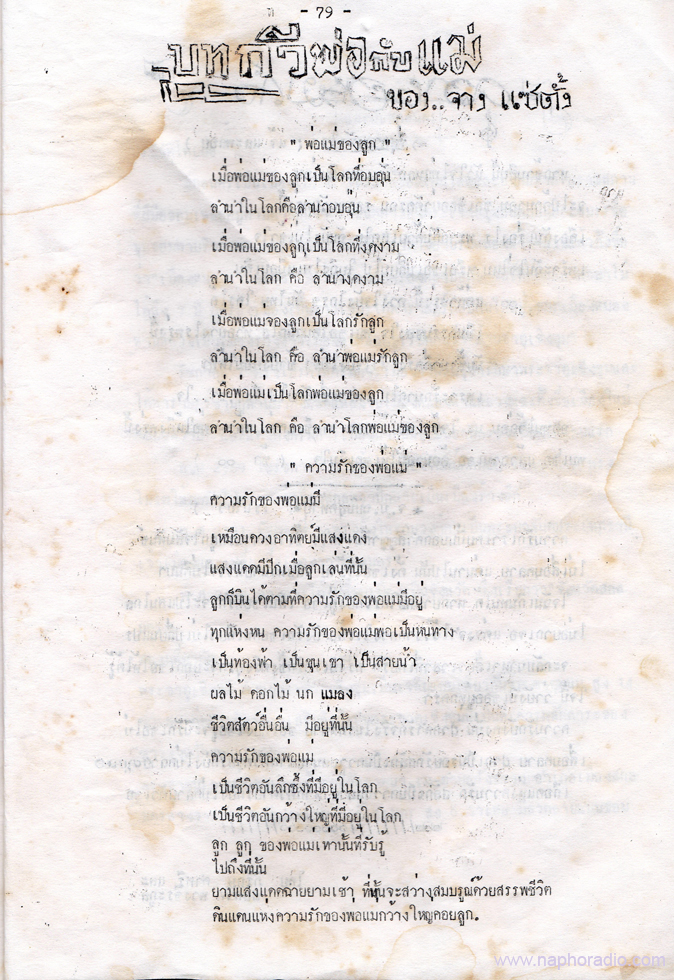 - 79 -
บทกวีพ่อกับแม่
ของ..จาง แซ่ตั้ง
" พ่อแม่ของลูก "
เมื่อพ่อแม่ของลูกเป็นโลกที่อบอุ่น
ลำนำในโลกคือลำนำอบอุ่น
เมื่อพ่อแม่ของลูกเป็นโลกที่งดงาม
ลำนำในโลก คือ ลำนำงดงาม
เมื่อพ่อแมจองลูกเป็นโลกรักลูก
ลำนำในโลก คือ ลำนำพ่อแม่รักลูก
เมื่อพ่อแม่เป็นโลกพ่อแม่ของลูก
ลำนำในโลก คือ ลำนำโลกพ่อแม่ของลูก
" ความรักของพ่อแม่ "
ความรักของพ่อแม่มี
เหมือนดวงอาทิตย์มีแสงแดง
แสงแดดมีปีกเมื่อลูกเล่นที่นั้น
ลูกก็บินได้ตามที่ความรักของพ่อแม่มีอยู่
ทุกแห่งหน ความรักของพ่อแม่พอเป็นหนทาง
เป็นท้องฟ้า เป็นขุนเขา เป็นสายน้ำ
ผลไม้ ดอกไม้ นก แมลง
ชีวิตสัตว์อื่นอื่น มีอยู่ที่นั้น
ความรักของพ่อแม่
เป็นชีวิตอันลึกซึ้งที่มีอยู่ในโลก
เป็นชีวิตอันกว้างใหญ่ที่มีอยู่ในโลก
ลูก ลูก ของพ่อแม่เท่านั้นที่รับรู้
ไปถึงที่นั้น
ยามแสงแดดฉายยามเช้า ที่นั้นจะสว่างสมบรูณ์ด้วยสรรพชีวิต
ดินแดนแห่งความรักของพ่อแม่กว้างใหญ่คอยลูก.
www.naphoradio.com